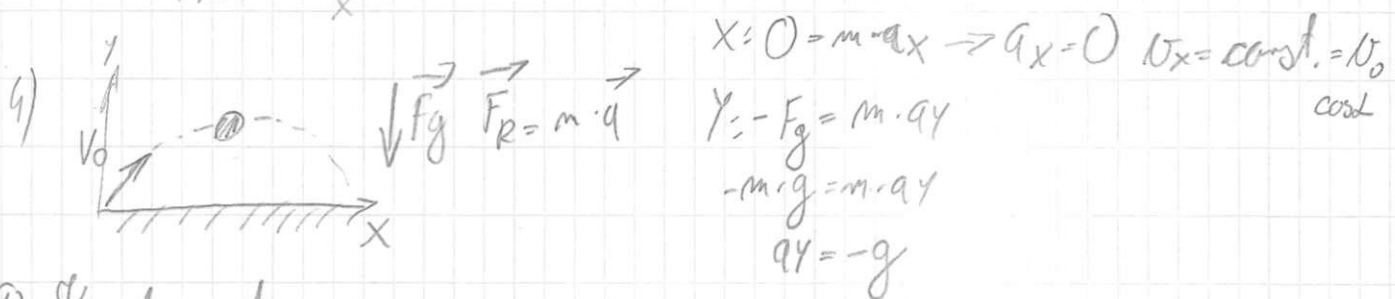 4)
y
V₀
x
F⃗g F⃗R = m · a⃗
X: 0 = m · ax → ax = 0 vx = const. = v₀ cosα
Y: - Fg = m · ay
-m · g = m · ay
ay = -g